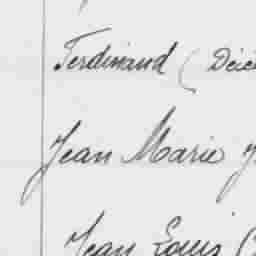 Ferdinand (
Jean Marie
Jean Louis (